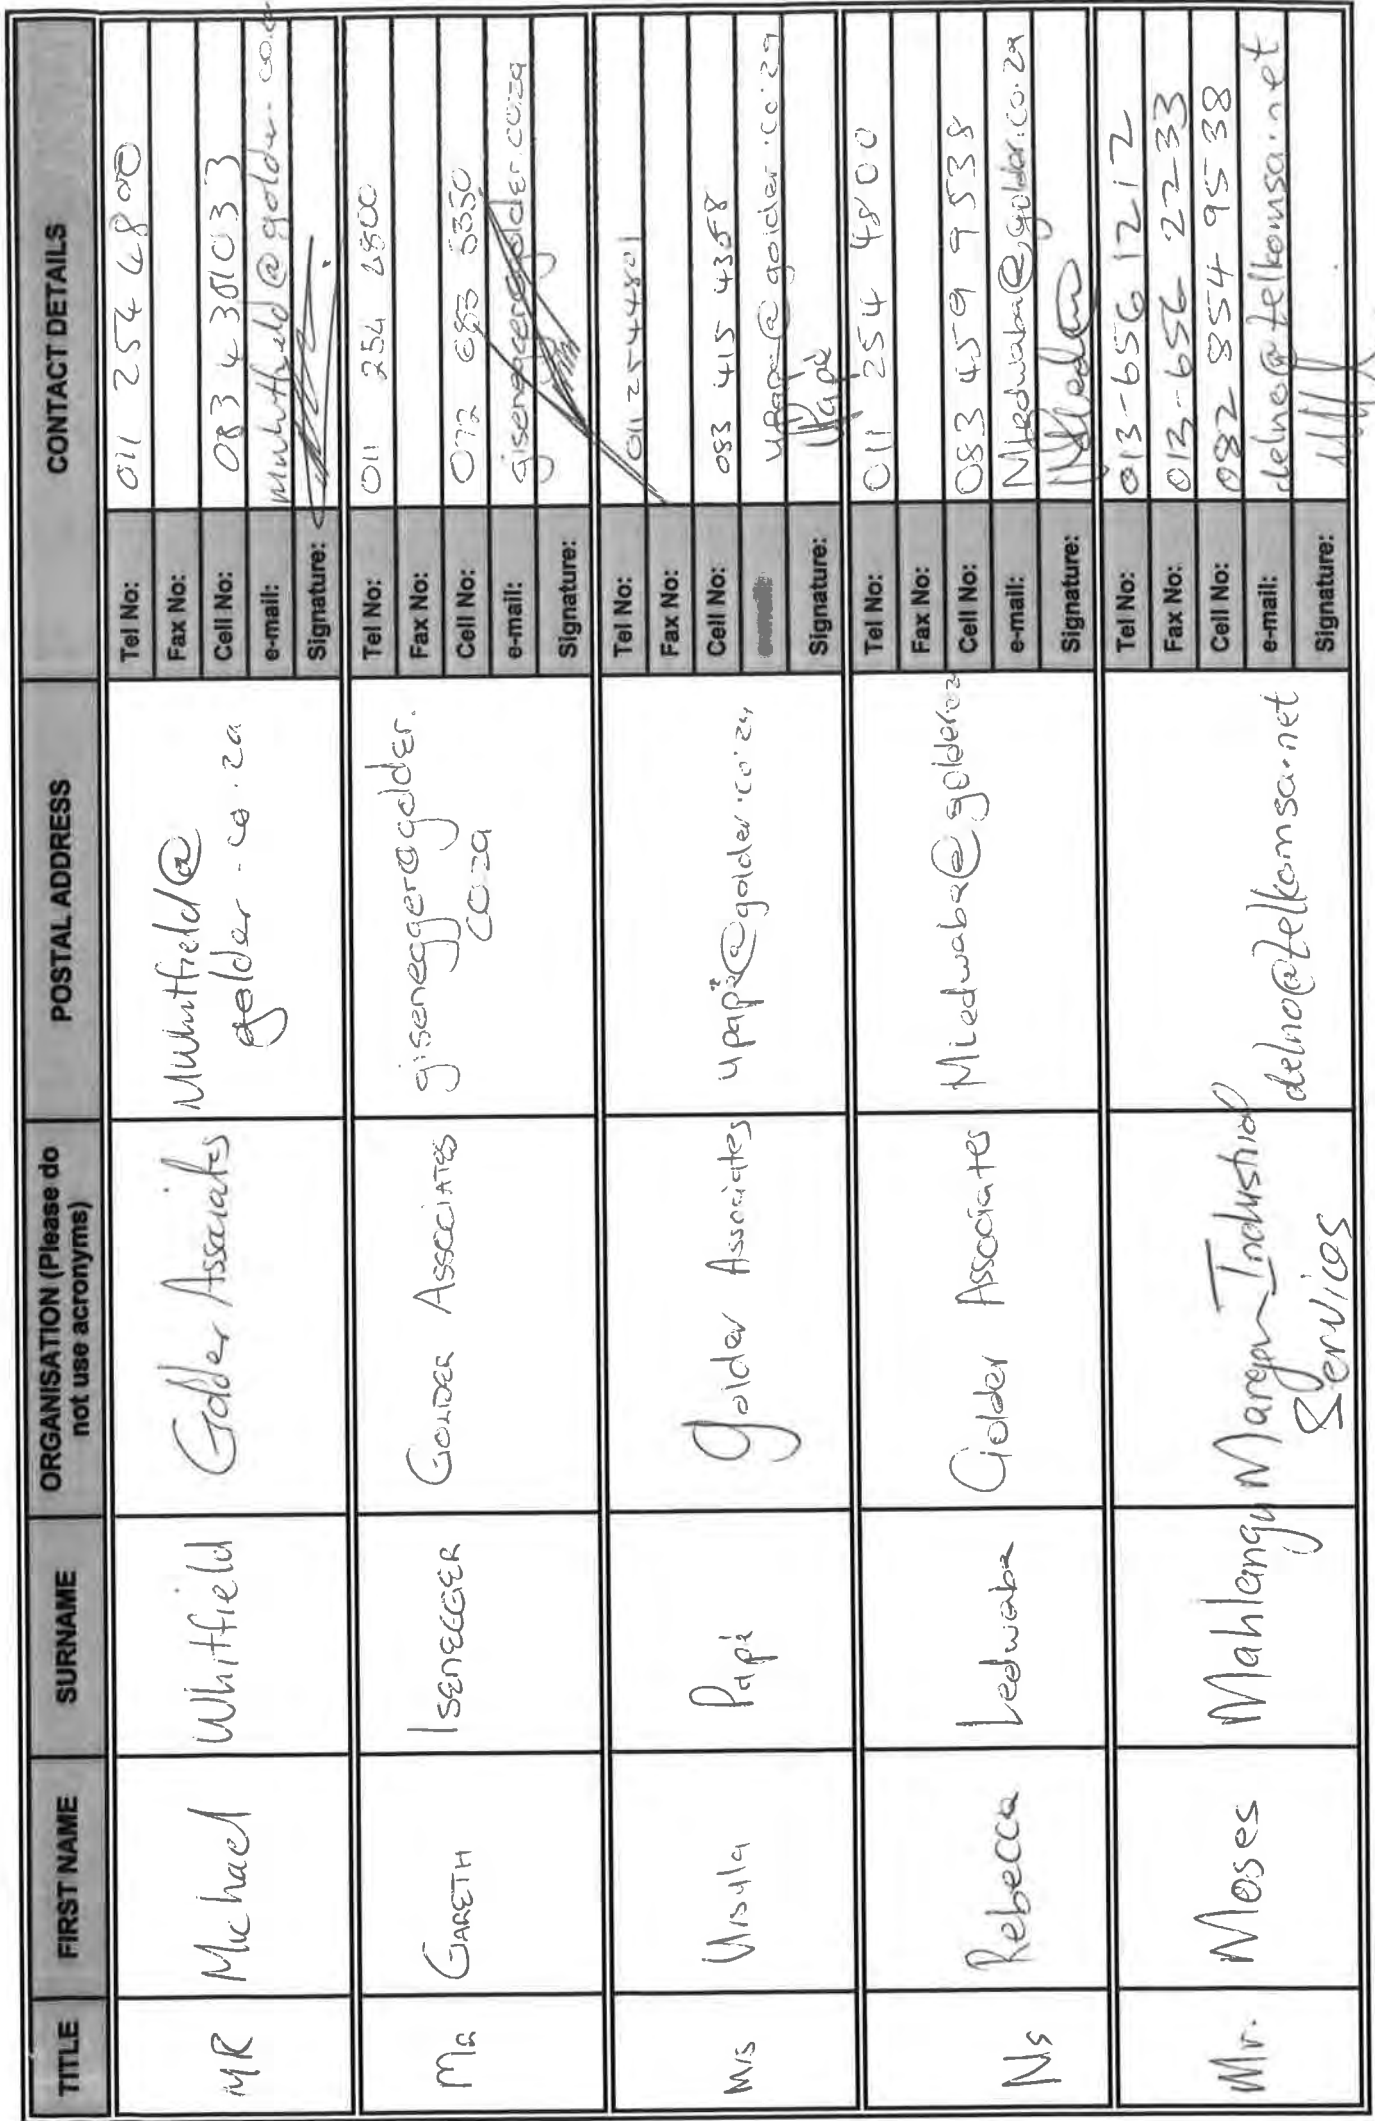 TITLE
FIRST NAME
SURNAME
ORGANISATION (Please do
not use acronyms)
POSTAL ADDRESS
CONTACT DETAILS
MR
Michael
Whitfield
Golder Associates
MWhitfield@
golder.co.za
Tel No: 011 254 4800
Fax No:
Cell No:
e-mail: mwhitfield@golder.co.
Signature:
MR
GARETH
ISENEGGER
GOLDER ASSOCIATES
gisenegger@golder.
co.za
Tel No: 011 254 4800
Fax No:
Cell No: 072 685 5350
e-mail: gisenegger@golder.co.za
Signature:
M/s
Ursula
Papé
golder Associates
upapé@golder.co.za
Tel No: 011 2544801
Fax No:
Cell No: 083 415 4358
upape@golder.co.za
Signature: Papé
Ms
Rebecca
Ledwaba
Golder Associates
Mledwaba@golder.co.za
Tel No: 011 254 4800
Fax No:
Cell No: 083 459 9538
e-mail: Mledwaba@golder.co.za
Signature:
Mr.
Moses
Mahlangu
Industrial
Services
delno@telkomsa.net
Tel No: 013-656 1212
Fax No: 013-656 2233
Cell No: 082 854 9538
e-mail: delno@telkomsa.net
Signature: